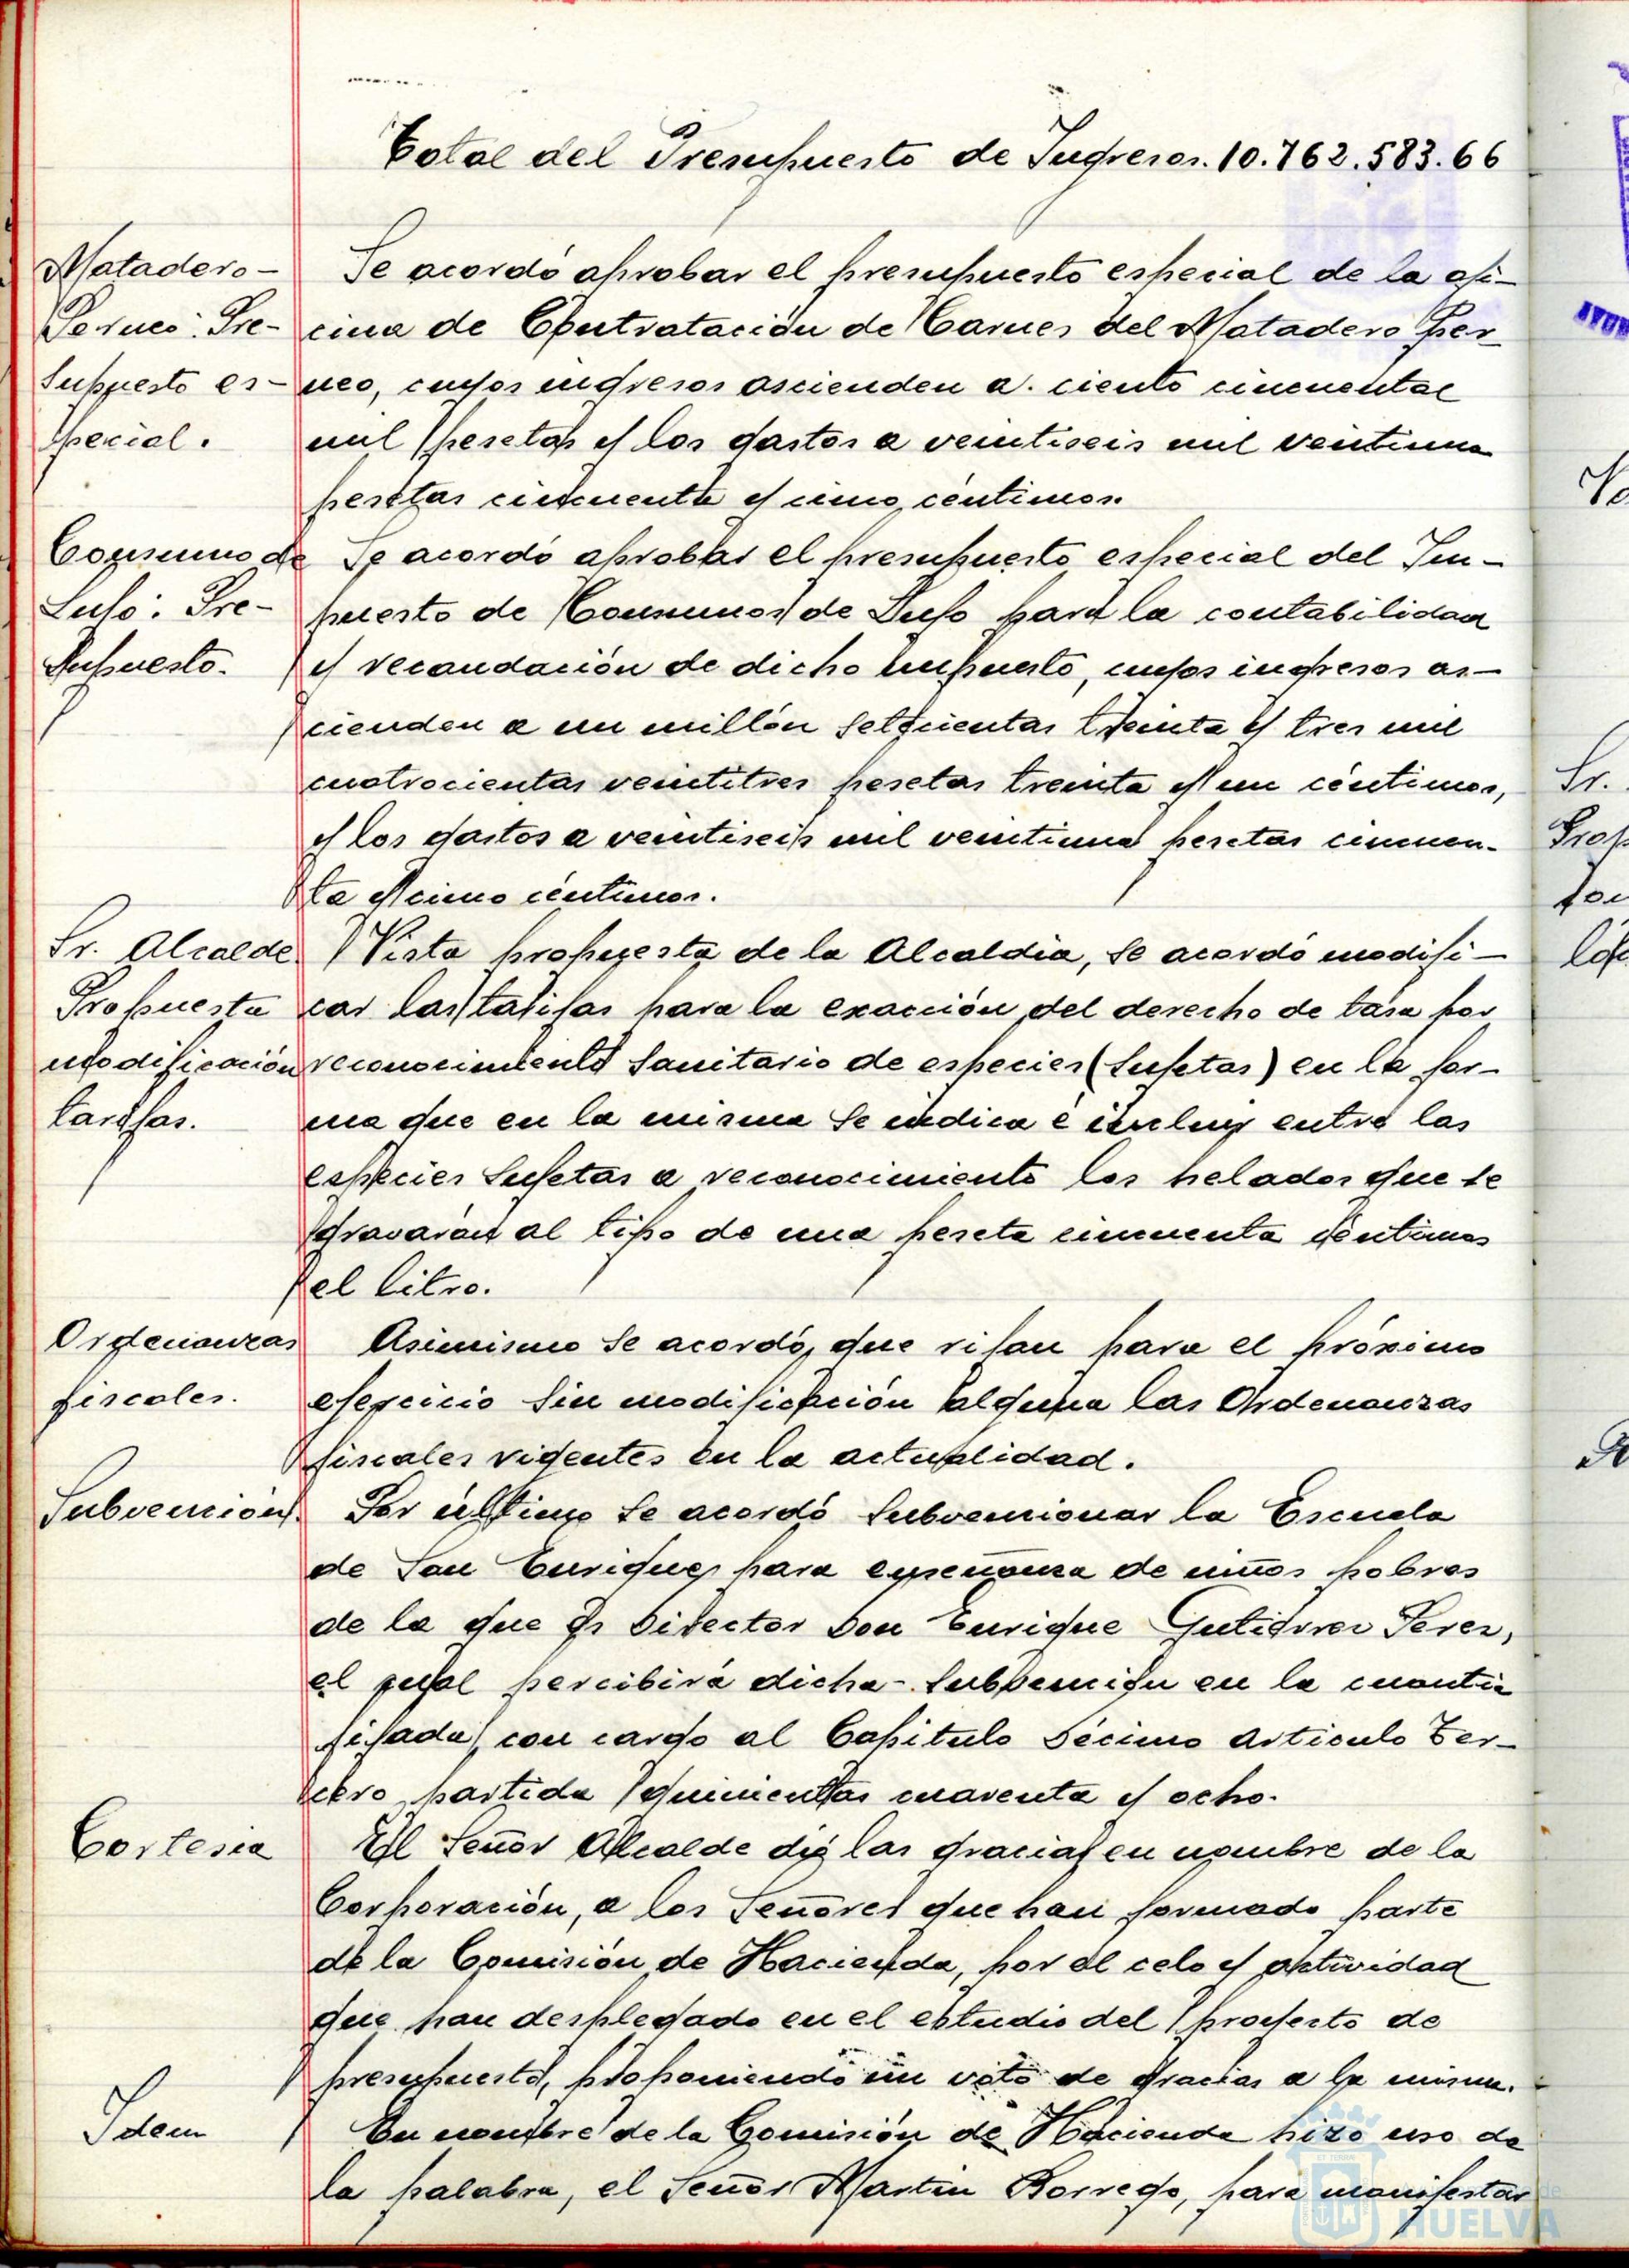 Total del Presupuesto de Ingresos. 10.762.583.66
Matadero-
Porcuo: Pre-
supuesto es-
pecial.
Se acordó aprobar el presupuesto especial de la ofi-
cina de Contratación de Carnes del Matadero Por
cuo, cuyos ingresos ascienden a. ciento cincuenta
mil pesetas y los gastos a veintiseis mil veintiuna
pesetas cincuenta y cinco céntimos.
Consumo de
Lujo: Pre-
supuesto.
Se acordó aprobar el presupuesto especial del Im-
puesto de Consumos de Lujo para la contabilidad
y recaudación de dicho impuesto, cuyos ingresos as-
cienden a un millón setecientas treinta y tres mil
cuatrocientas veintitres pesetas treinta y un céntimos,
y los gastos a veintiseis mil veintiuna pesetas cincuen-
ta y cinco céntimos.
Sr. Alcalde
Propuesta
modificación
tarifas.
Vista propuesta de la Alcaldía, se acordó modifi-
car las tarifas para la exacción del derecho de tasa por
reconocimiento Sanitario de especies (sujetas) en la for-
ma que en la misma se indica é incluir entre las
especies sujetas a reconocimiento los helados que se
gravarán al tipo de una peseta cincuenta céntimos
el litro.
Ordenanzas
fiscales.
Asimismo se acordó, que rijan para el próximo
ejercicio sin modificación alguna las Ordenanzas
fiscales vigentes en la actualidad.
Subvención.
Por último se acordó subvencionar la Escuela
de San Enrique, para enseñanza de niños pobres
de la que es Director Don Enrique Gutiérrez Perez,
el cual percibirá dicha - subvención en la cuantía
fijada, con cargo al Capítulo Décimo Articulo Ter-
cero, partida quinientas cuarenta y ocho.
Cortesia
El Señor Alcalde dió las gracias en nombre de la
Corporación, a los Señores que han formado parte
de la Comisión de Hacienda, por el celo y actividad
que han desplegado en el estudio del proyecto de
presupuesto, proponiendo un voto de gracias a la misma.
Idem
En nombre de la Comisión de Hacienda hizo uso de
la palabra, el Señor Martin Borrego, para manifestar
HUELVA